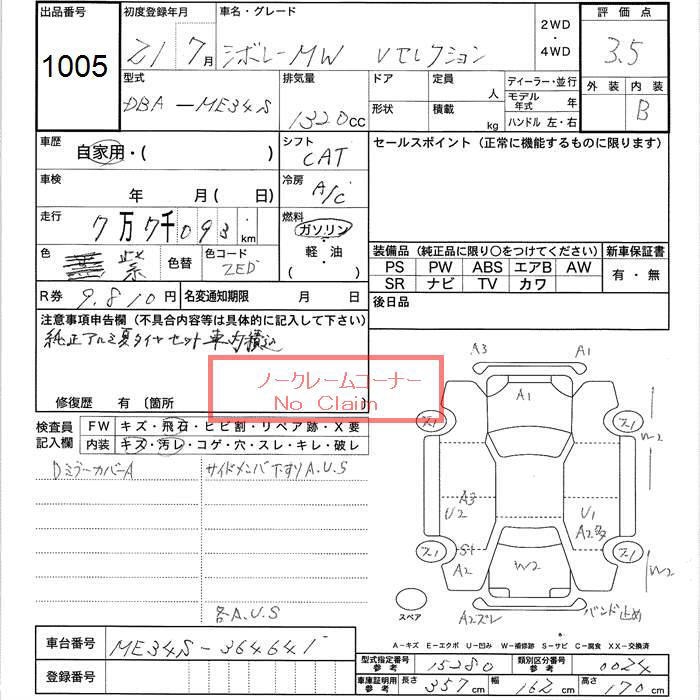 出品番号
1005
初度登録年月
21 7月
車名・グレード
シボレーMW Vセレクション
2WD
・
4WD
評価点
3.5
外装 内装
B
型式
DBA-ME34S
排気量
1320cc
ドア
形状
定員
人
積載
kg
ディーラー・並行
モデル年式 年
ハンドル 左・右
車歴
自家用・( )
シフト
CAT
セールスポイント(正常に機能するものに限ります)
車検
年 月( 日)
冷房
A/C
走行
7万7千093km
燃料
ガソリン
・
軽油
( )
色
紫
色替
色コード
ZED
装備品(純正品に限り〇をつけてください)
新車保証書
PS PW ABS エアB AW
SR ナビ TV カワ
有・無
R券 9.810円
名変通知期限 月 日
後日品
注意事項申告欄(不具合内容等は具体的に記入して下さい)
純正アルミ夏タイヤセット車内積込
ノークレームコーナー
No Claim
修復歴 有〔箇所
検査員
記入欄
FW キズ・飛石・ヒビ割・リペア跡・X要
内装 キズ・汚レ・コゲ・穴・スレ・キレ・破レ
Dミラーカバー A
サイドメンバ下すりA.U.S
各A.U.S
A3 A1
A1
ス1 ス1
W2
A3
U2
U1
A2多
ス1 S1
A2
W2
ス1
W2
スペア
A2ズレ
バンド止め
車台番号 ME34S-364641
登録番号
A-キズ E-エクボ U-凹み W-補修跡 S-サビ C-腐食 XX-交換済
型式指定番号
参考
15280
類別区分番号
参考
0024
車庫証明用
参考
長さ 357cm 幅 162cm 高さ 170cm